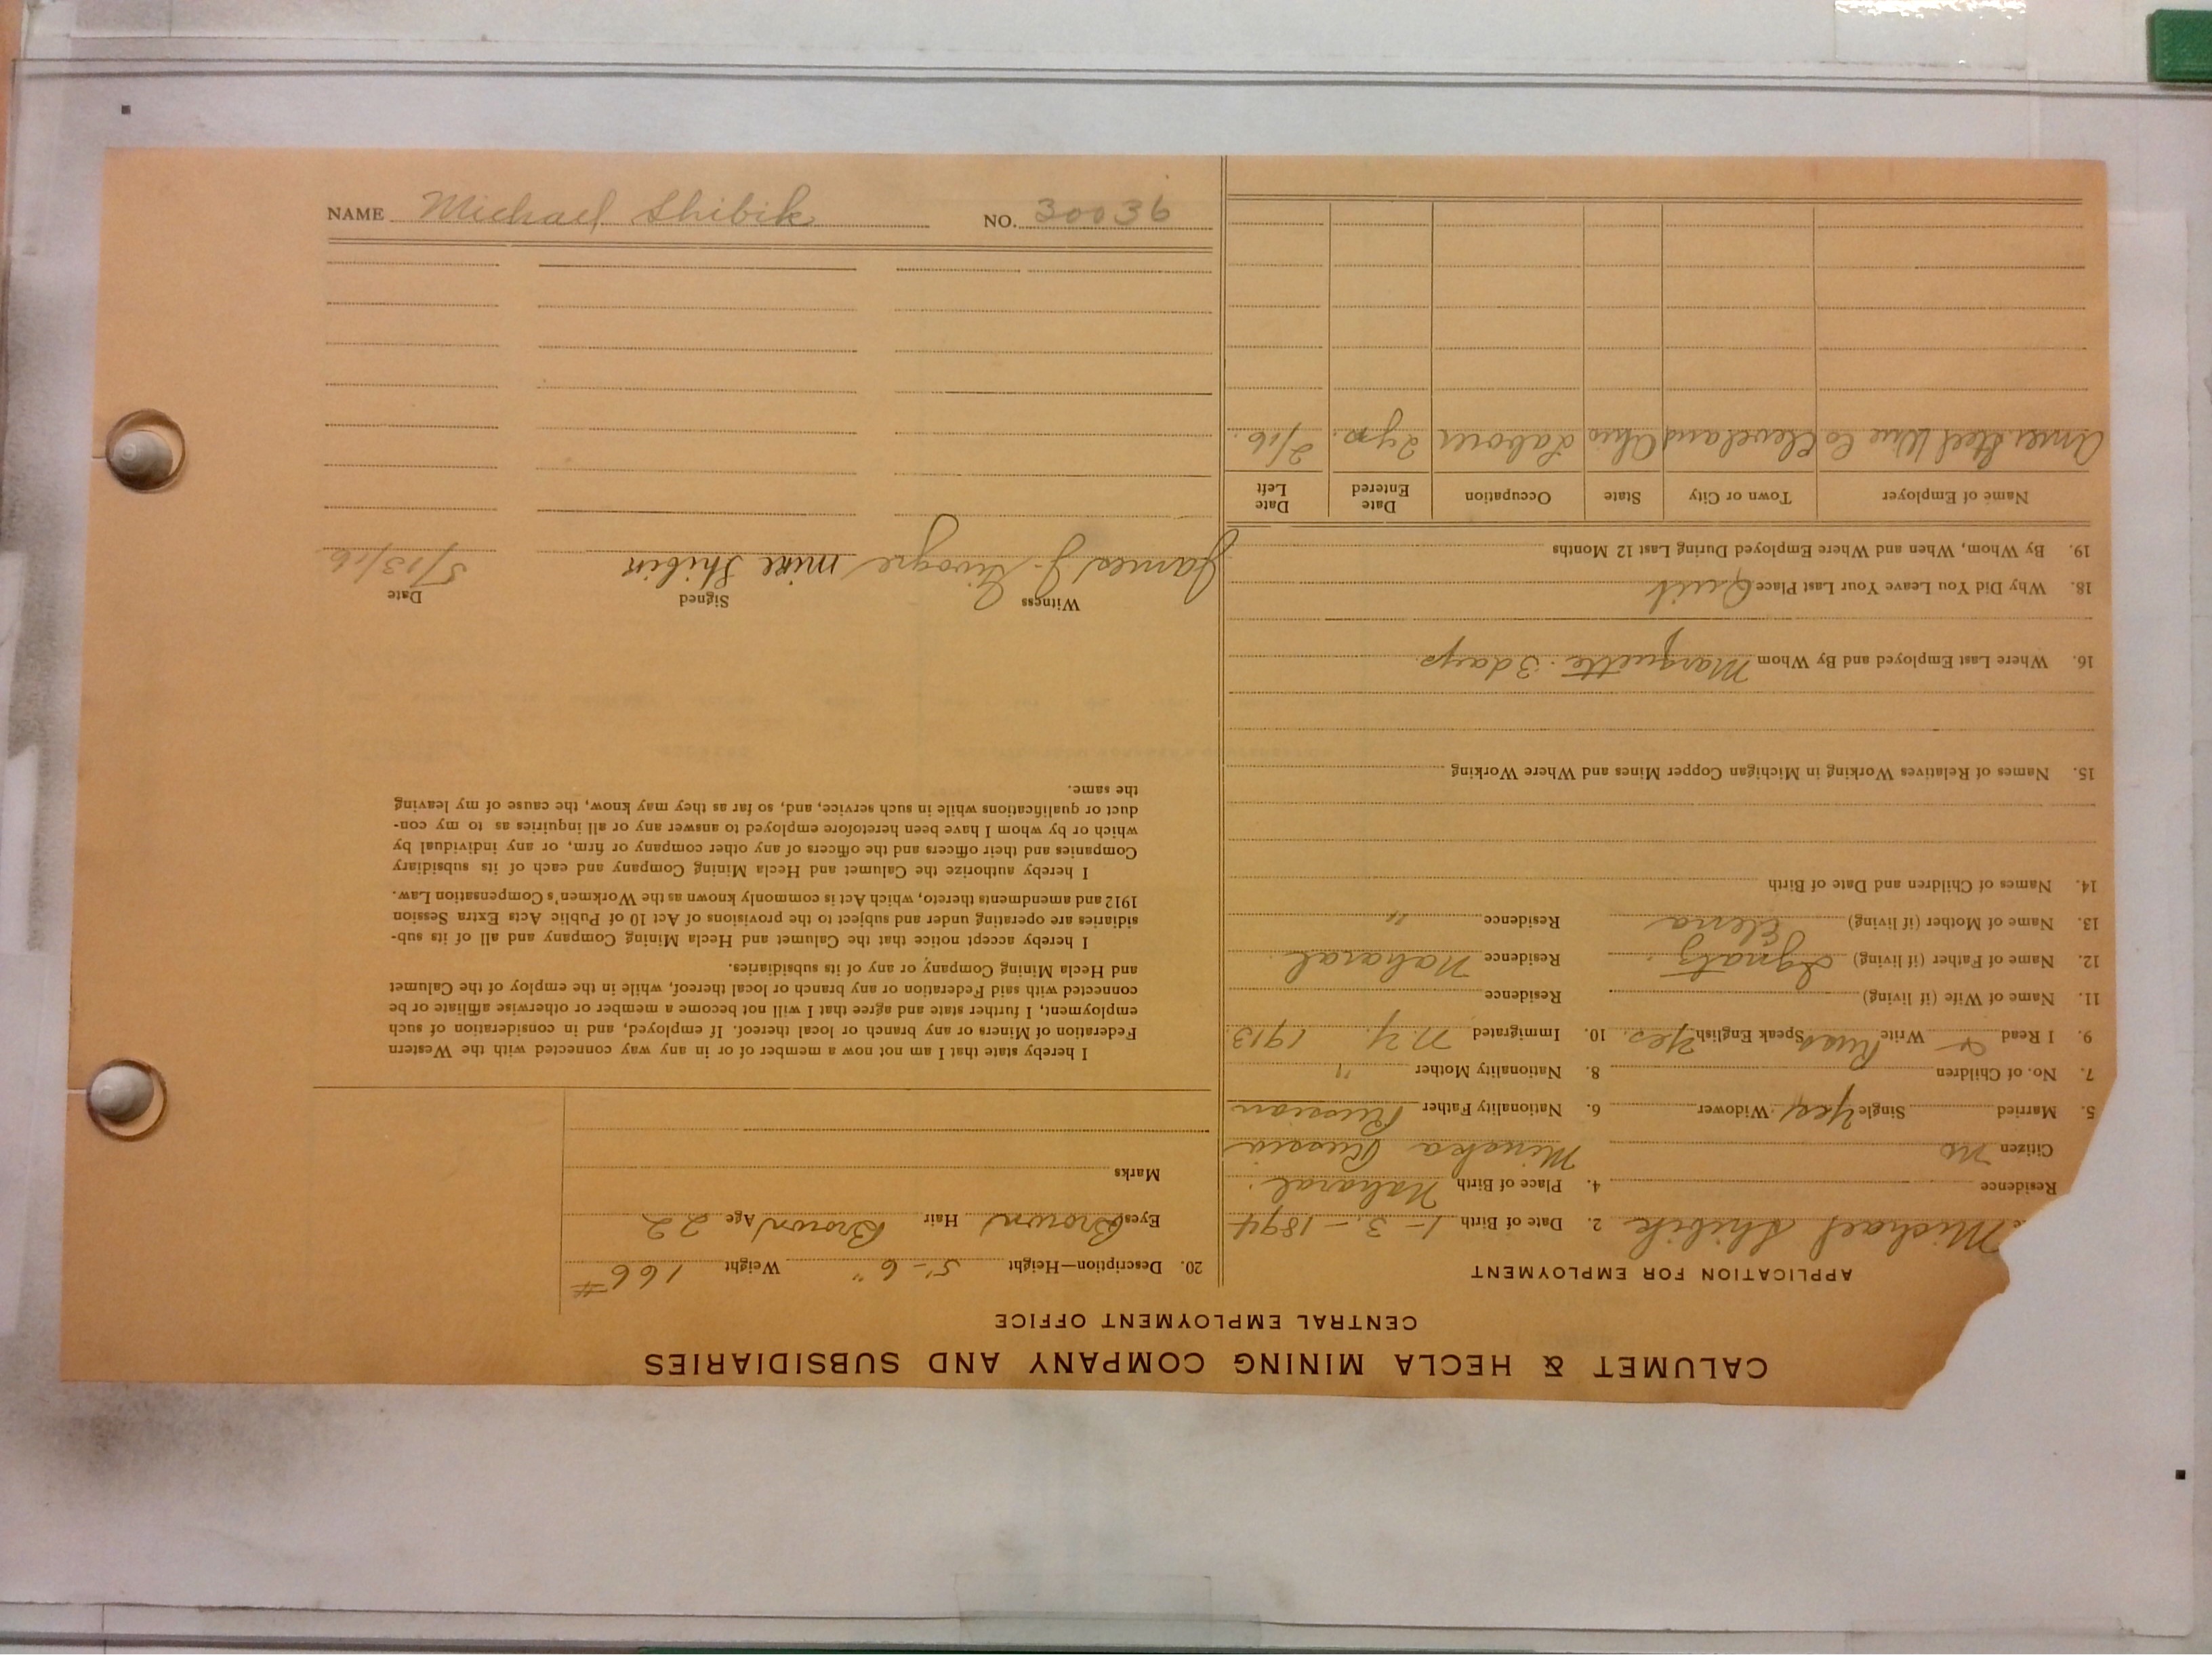 CALUMET & HECLA MINING COMPANY AND SUBSIDIARIES
CENTRAL EMPLOYMENT OFFICE
APPLICATION FOR EMPLOYMENT
Michael Shibik 2. Date of Birth 1-3-1894
Residence 4. Place of Birth Naharal
Citizen no Minska Russia
5. Married Single Yes Widower 6. Nationality Father Russian
7. No. of Children 8. Nationality Mother "
9. I Read & Write Russ Speak English Yes. 10. Immigrated N.Y. 1913
11. Name of Wife (if living) Residence
12. Name of Father (if living) Ignatz Residence Naharal
13. Name of Mother (if living) Elena Residence "
14. Names of Children and Date of Birth
15. Names of Relatives Working in Michigan Copper Mines and Where Working
16. Where Last Employed and By Whom Marquette. 3 days
18. Why Did You Leave Your Last Place Quit
19. By Whom, When and Where Employed During Last 12 Months
Name of Employer Town or City State Occupation Date Entered Date Left
Amer. Steel Wire Co Cleveland Ohio Laborer 2 yrs. 2/16.
20. Description—Height 5'-6" Weight 166#
Eyes Brown Hair Brown Age 22
Marks
I hereby state that I am not now a member of or in any way connected with the Western
Federation of Miners or any branch or local thereof. If employed, and in consideration of such
employment, I further state and agree that I will not become a member or otherwise affiliate or be
connected with said Federation or any branch or local thereof, while in the employ of the Calumet
and Hecla Mining Company or any of its subsidiaries.
I hereby accept notice that the Calumet and Hecla Mining Company and all of its sub-
sidiaries are operating under and subject to the provisions of Act 10 of Public Acts Extra Session
1912 and amendments thereto, which Act is commonly known as the Workmen's Compensation Law.
I hereby authorize the Calumet and Hecla Mining Company and each of its subsidiary
Companies and their officers and the officers of any other company or firm, or any individual by
which or by whom I have been heretofore employed to answer any or all inquiries as to my con-
duct or qualifications while in such service, and, so far as they may know, the cause of my leaving
the same.
Witness Signed Date
James J. mike Shibik 5/13/16
NAME Michael Shibik NO. 30036